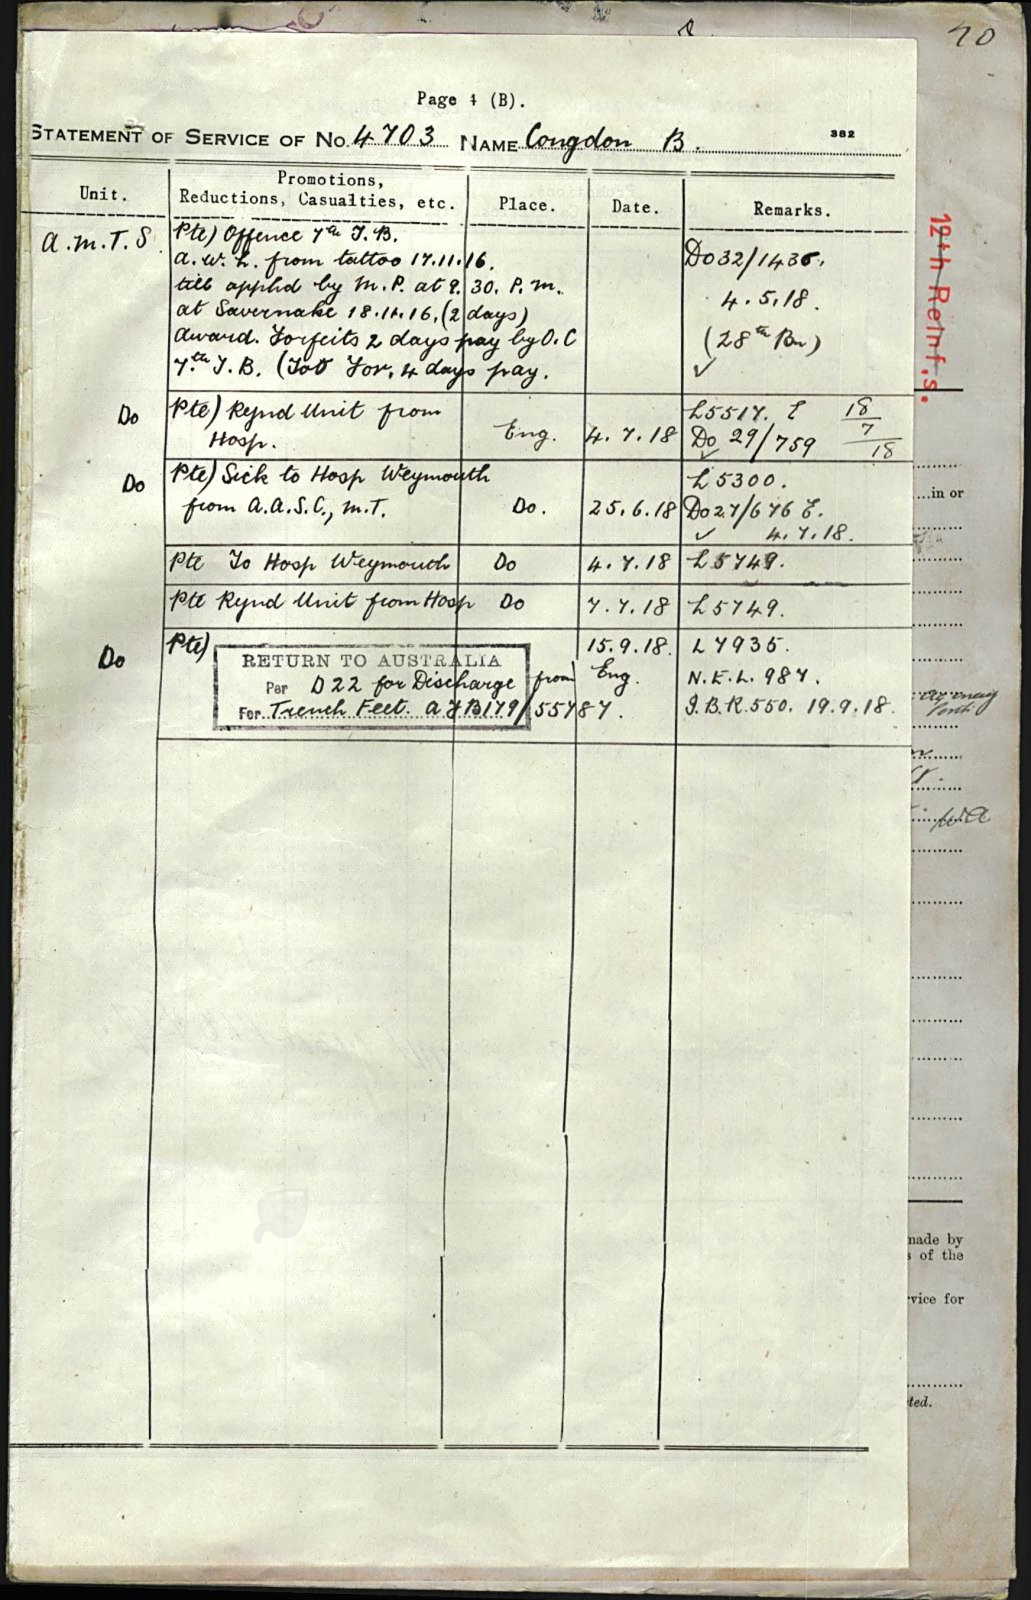 40
Page 4 (B).
STATEMENT OF SERVICE OF No. 4703 NAME Congdon B. 382
Unit. Promotions, Reductions, Casualties, etc. Place. Date. Remarks.
A.M.T.S Pte) Offence 7th T.B.
A.W.L. from tattoo 17.11.16. Do 32/1436.
till apphd by M.P. at 9.30. P.M. 4.5.18.
at Savernake 18.11.16. (2 days) (28th Bn)
Award. Forfeits 2 days pay by O.C
7th T.B. (Tot For. 4 days pay.
Do Pte) Rejnd Unit from Hosp. Eng. 4.7.18 L5517. E
Do 29/759 18/7/18
Do Pte) Sick to Hosp Weymouth L5300.
from A.A.S.C., M.T. Do. 25.6.18 Do 27/676 E.
4.7.18.
Pte To Hosp Weymouth Do 4.7.18 L5749.
Pte Rejnd Unit from Hosp Do 7.7.18 L5749.
Do Pte) 15.9.18. L7935.
RETURN TO AUSTRALIA
Per D22 for Discharge from Eng. N.E.L. 987.
For Trench Feet. AJB179/55787. I.B.R. 550. 19.9.18.
12th Reinf.s.
in or
W.A
made by
s of the
vice for
ted.